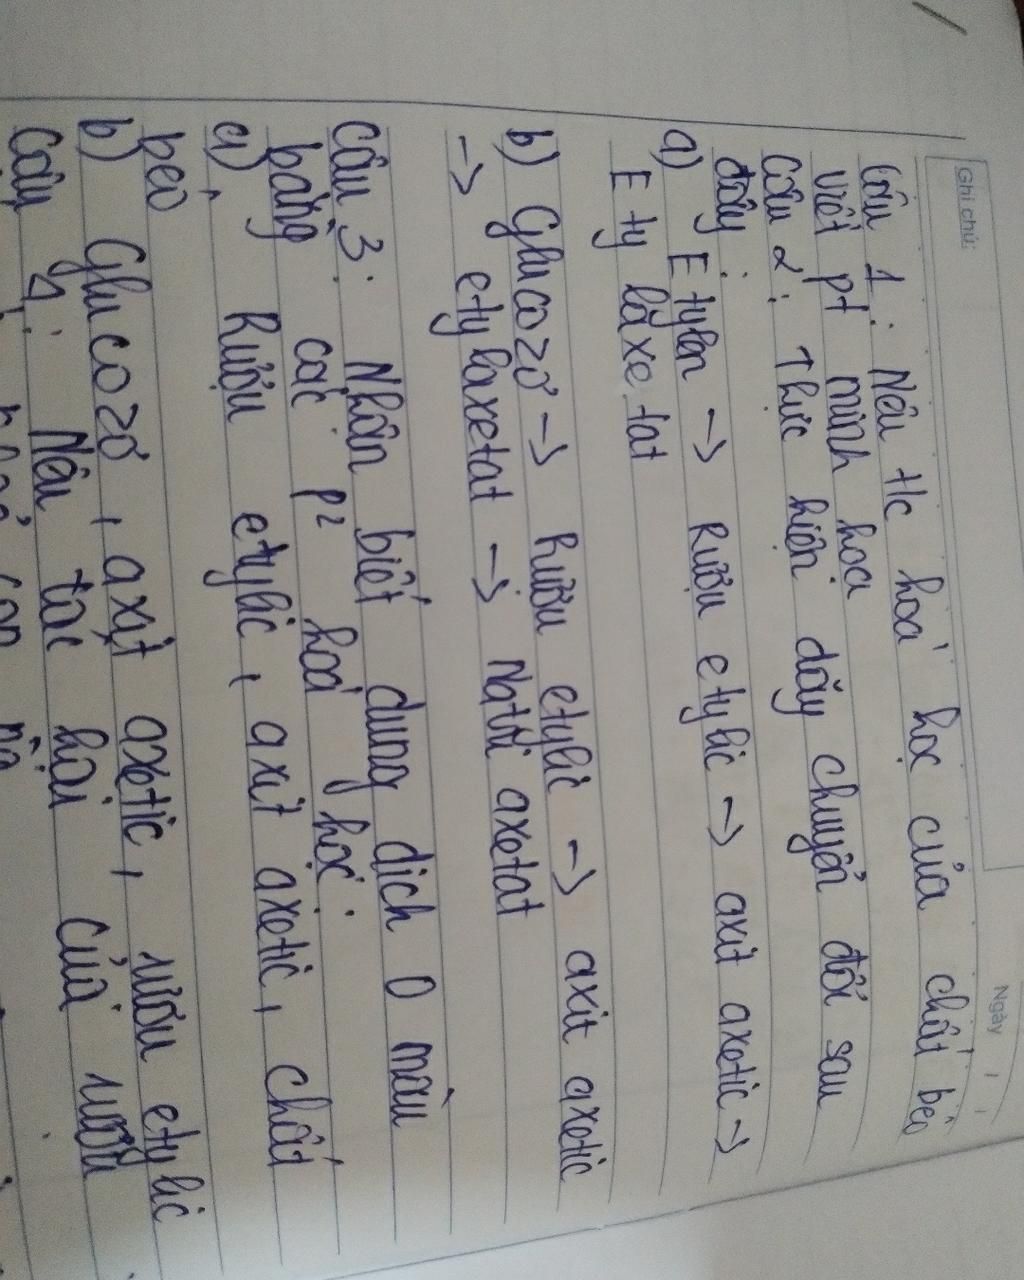 Ghi chú:
Ngày / /
Câu 1: Nêu t/c hoá học của chất béo
viết pt minh hoạ
Câu 2: Thực hiện dãy chuyển đổi sau
đây:
a) Etylen -> Rượu etylic -> axit axetic ->
Etylaxetat
b) Glucozơ -> Rượu etylic -> axit axetic
-> etylaxetat -> Natri axetat
Câu 3: Nhận biết dung dịch 0 màu
bằng các p² hoá học:
a) Rượu etylic, axit axetic, chất
béo
b) Glucozơ, axit axetic, rượu etylic
Câu 4: Nêu tác hại của rượu